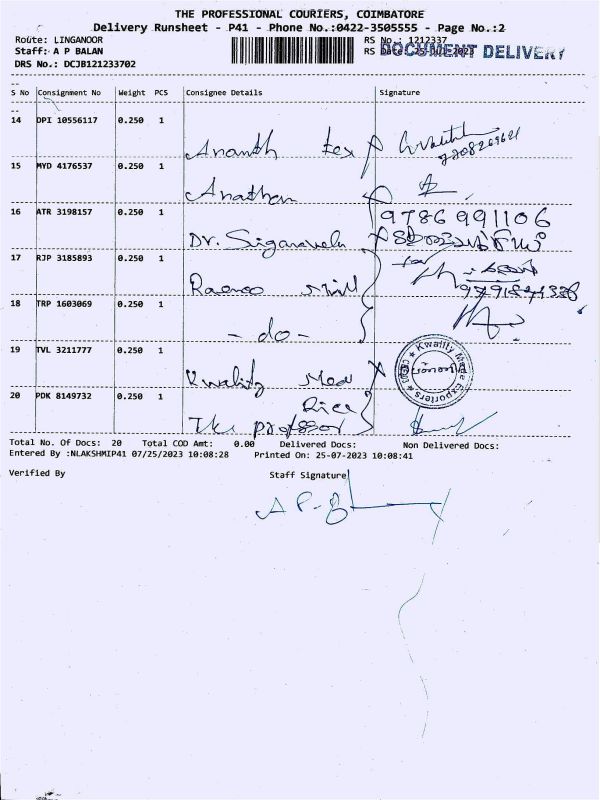 THE PROFESSIONAL COURIERS, COIMBATORE
Delivery Runsheet - P41 - Phone No.:0422-3505555 - Page No.:2
Route: LINGANOOR
RS No.: 1212337
Staff: A P BALAN
RS Date: 25-07-2023
DOCUMENT DELIVERY
DRS No.: DCJB121233702
S No Consignment No Weight PCS Consignee Details Signature
14 DPI 10556117 0.250 1 Ananth tex
15 MYD 4176537 0.250 1 Anathan
16 ATR 3198157 0.250 1 Dr. 9786991106
17 RJP 3185893 0.250 1 Mill
18 TRP 1603069 0.250 1 - do -
19 TVL 3211777 0.250 1 Kwality Med Rice
Kwality Made Exporters
20 PDK 8149732 0.250 1 The professor
Total No. Of Docs: 20 Total COD Amt: 0.00 Delivered Docs: Non Delivered Docs:
Entered By :NLAKSHMIP41 07/25/2023 10:08:28 Printed On: 25-07-2023 10:08:41
Verified By Staff Signature